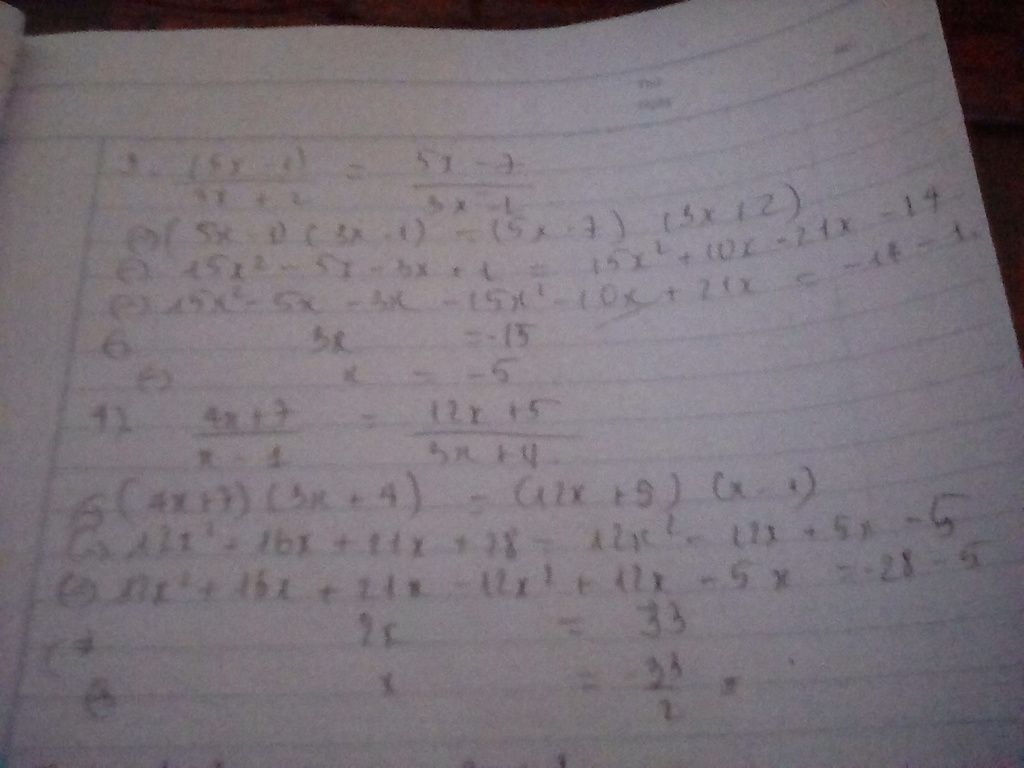 3. (5x - 1) / 3x + 2 = 5x - 7 / 3x - 1
(=) (5x - 1) (3x - 1) = (5x - 7) (3x + 2)
(=) 15x² - 5x - 3x + 1 = 15x² + 10x - 21x - 14
(=) 15x² - 5x - 3x - 15x² - 10x + 21x = -14 - 1
3x = -15
(=) x = -5
4) 4x+7 / x - 1 = 12x + 5 / 3x + 4
(4x+7) (3x + 4) = (12x + 5) (x - 1)
(=) 12x² + 16x + 21x + 28 = 12x² - 12x + 5x - 5
(=) 12x² + 16x + 21x - 12x² + 12x - 5x = -28 - 5
= 33
x = 33 / 2